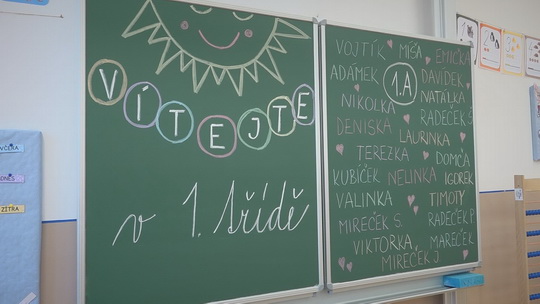 VČERA
DNES
ZÍTRA
VÍTEJTE
v 1. třídě
VOJTÍK MÍŠA EMIČKA
ADÁMEK 1.A DAVÍDEK
NIKOLKA NATÁLKA
DENISKA RADEČEK S.
LAURINKA
TEREZKA DOMČA
KUBÍČEK NELINKA IGOREK
VALINKA TIMOTY
MIREČEK S. RADEČEK P.
VIKTORKA MAREČEK
MIREČEK J.